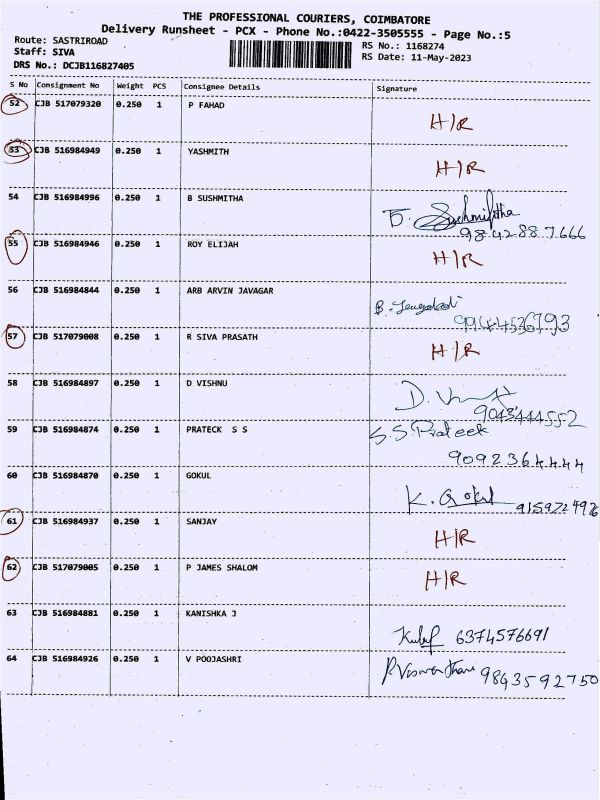 THE PROFESSIONAL COURIERS, COIMBATORE
Delivery Runsheet - PCX - Phone No.:0422-3505555 - Page No.:5
Route: SASTRIROAD
Staff: SIVA
DRS No.: DCJB116827405
RS No.: 1168274
RS Date: 11-May-2023
S No Consignment No Weight PCS Consignee Details Signature
52 CJB 517079320 0.250 1 P FAHAD
H/R
53 CJB 516984949 0.250 1 YASHMITH
H/R
54 CJB 516984996 0.250 1 B SUSHMITHA
B. Sushmitha
9842887666
55 CJB 516984946 0.250 1 ROY ELIJAH
H/R
56 CJB 516984844 0.250 1 ARB ARVIN JAVAGAR
B.
9944536793
57 CJB 517079008 0.250 1 R SIVA PRASATH
H/R
58 CJB 516984897 0.250 1 D VISHNU
D.
9043444552
59 CJB 516984874 0.250 1 PRATECK S S
S.S. Prateek
9092364444
60 CJB 516984870 0.250 1 GOKUL
K. Gokul
61 CJB 516984937 0.250 1 SANJAY
H/R
62 CJB 517079005 0.250 1 P JAMES SHALOM
H/R
63 CJB 516984881 0.250 1 KANISHKA J
6374576691
64 CJB 516984926 0.250 1 V POOJASHRI
9843592750